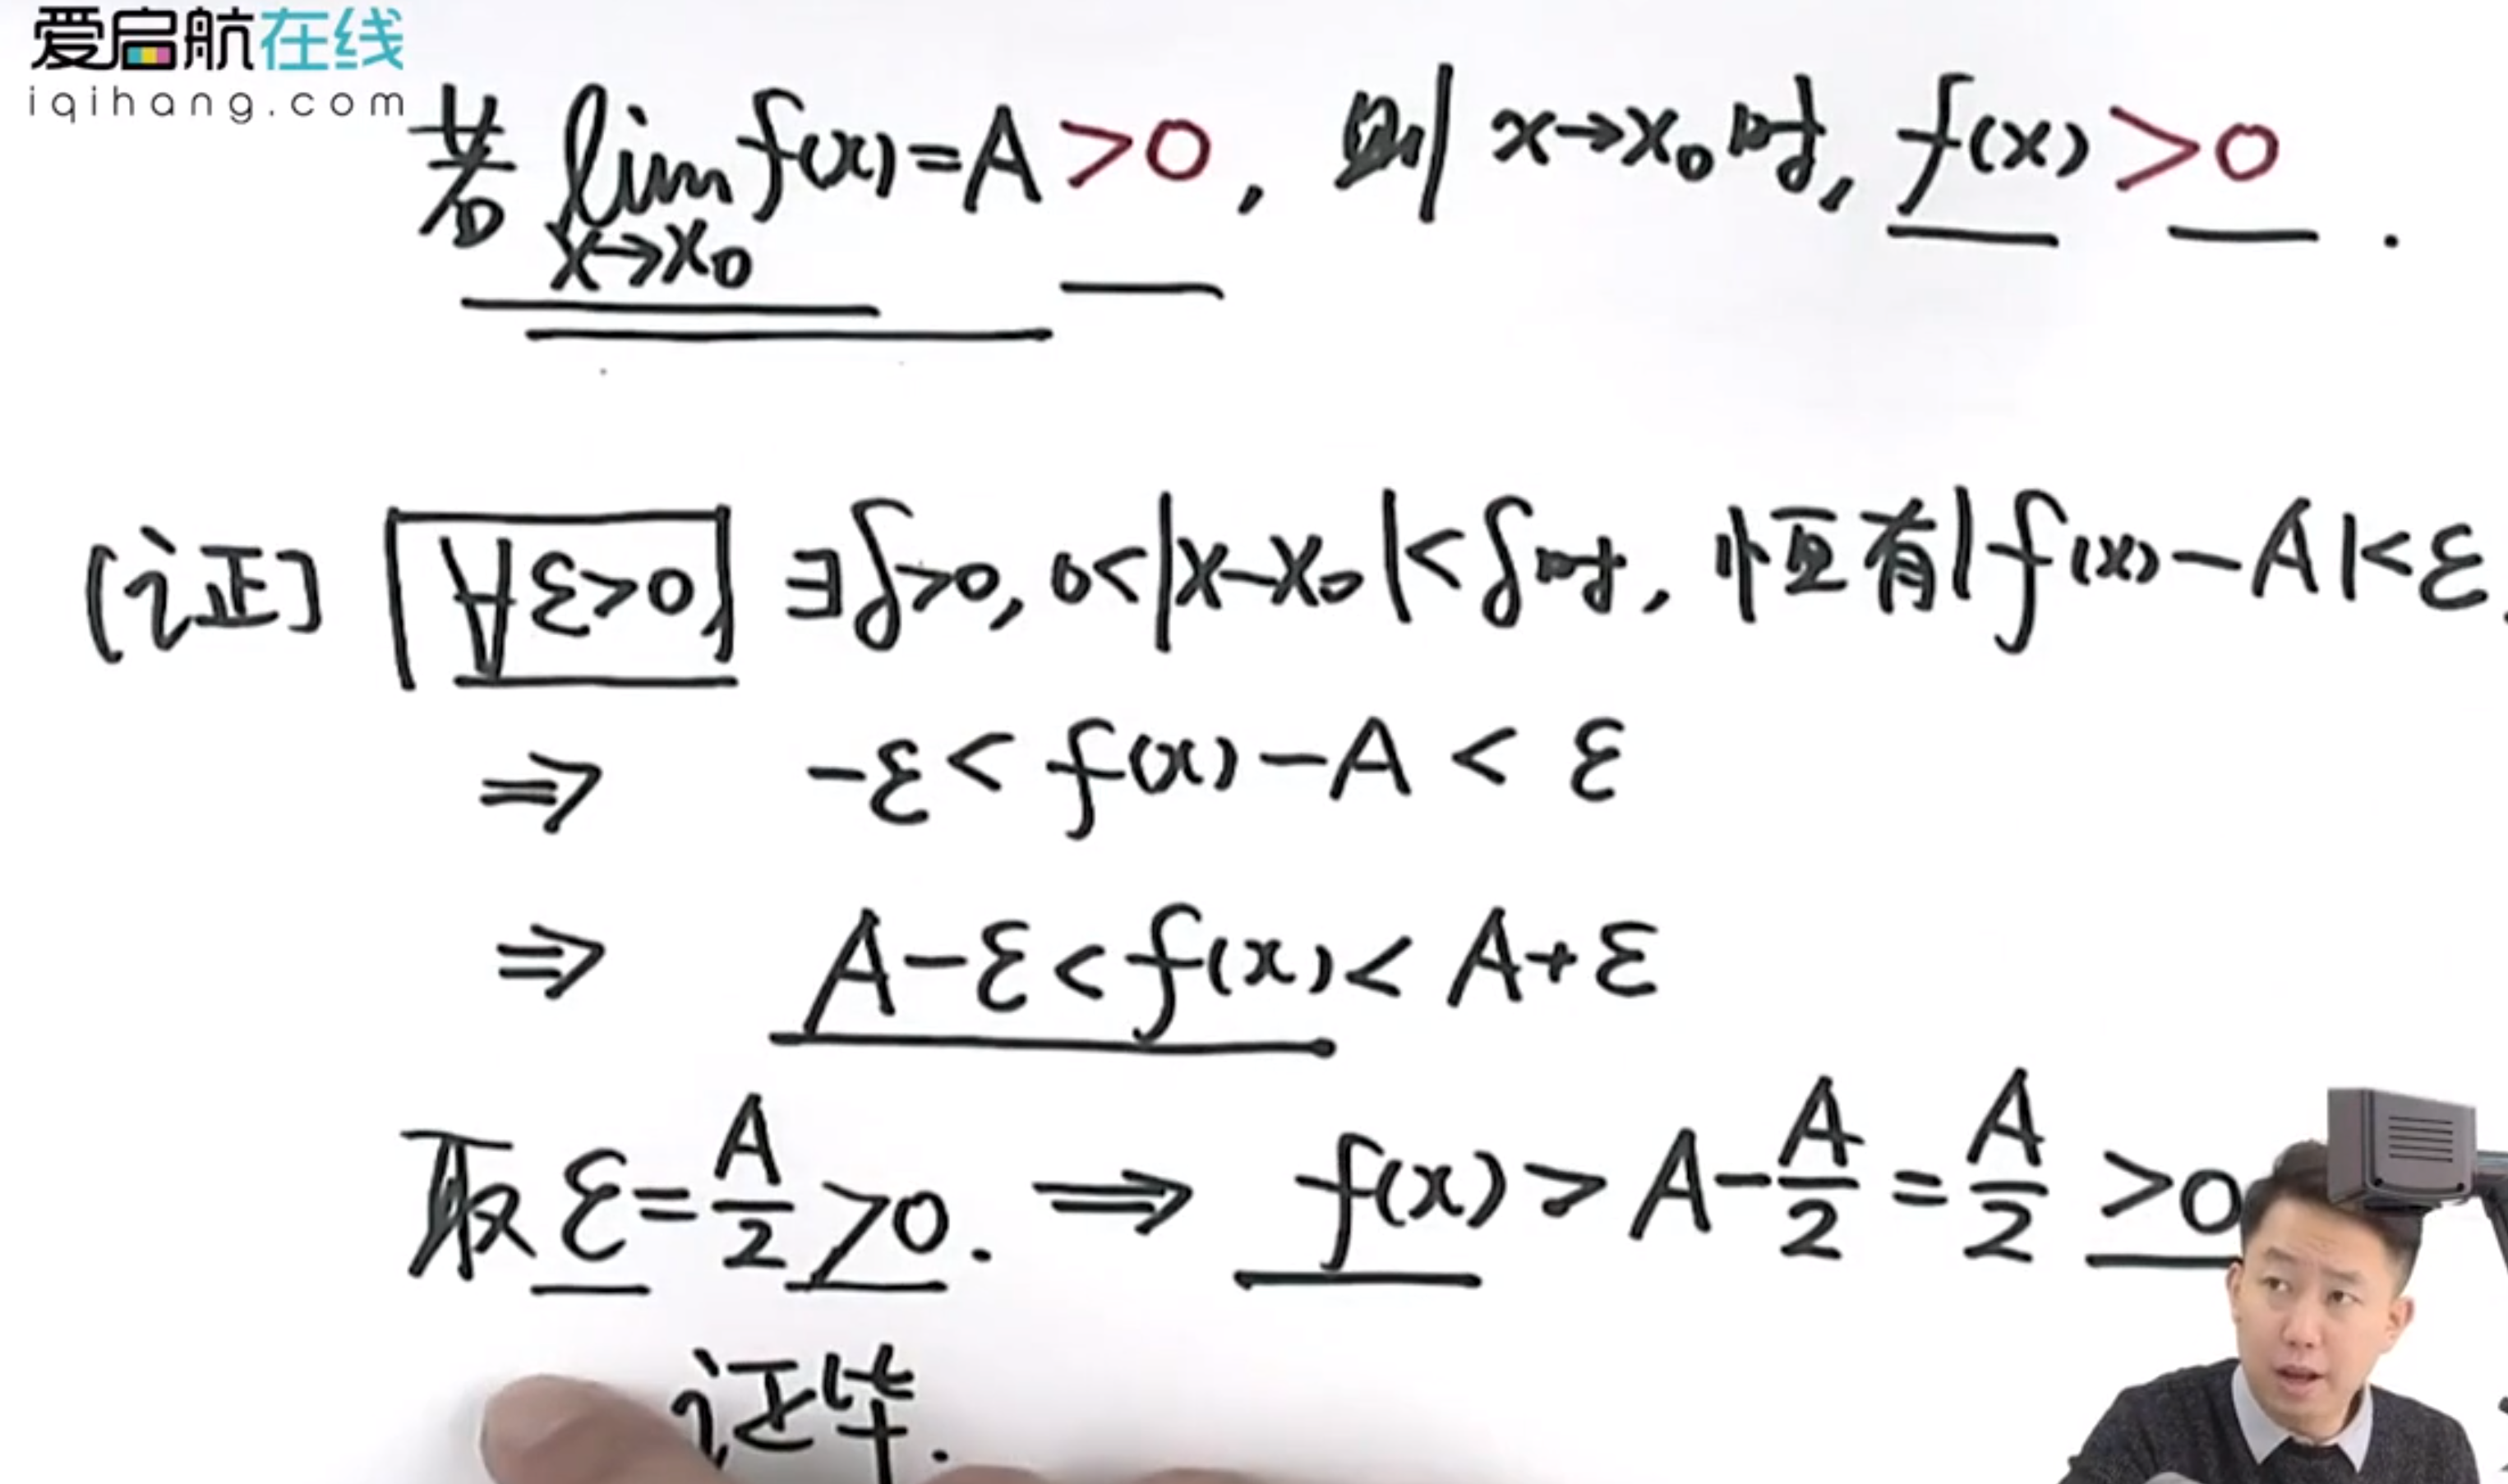 爱启航在线
iqihang.com
若 lim f(x)=A>0, 则 x→x₀时, f(x)>0.
x→x₀
[证] ∀ε>0, ∃δ>0, 0<|x-x₀|<δ时, 恒有|f(x)-A|<ε.
⇒ -ε<f(x)-A<ε
⇒ A-ε<f(x)<A+ε
取 ε=A/2>0. ⇒ f(x)>A-A/2=A/2>0
证毕.